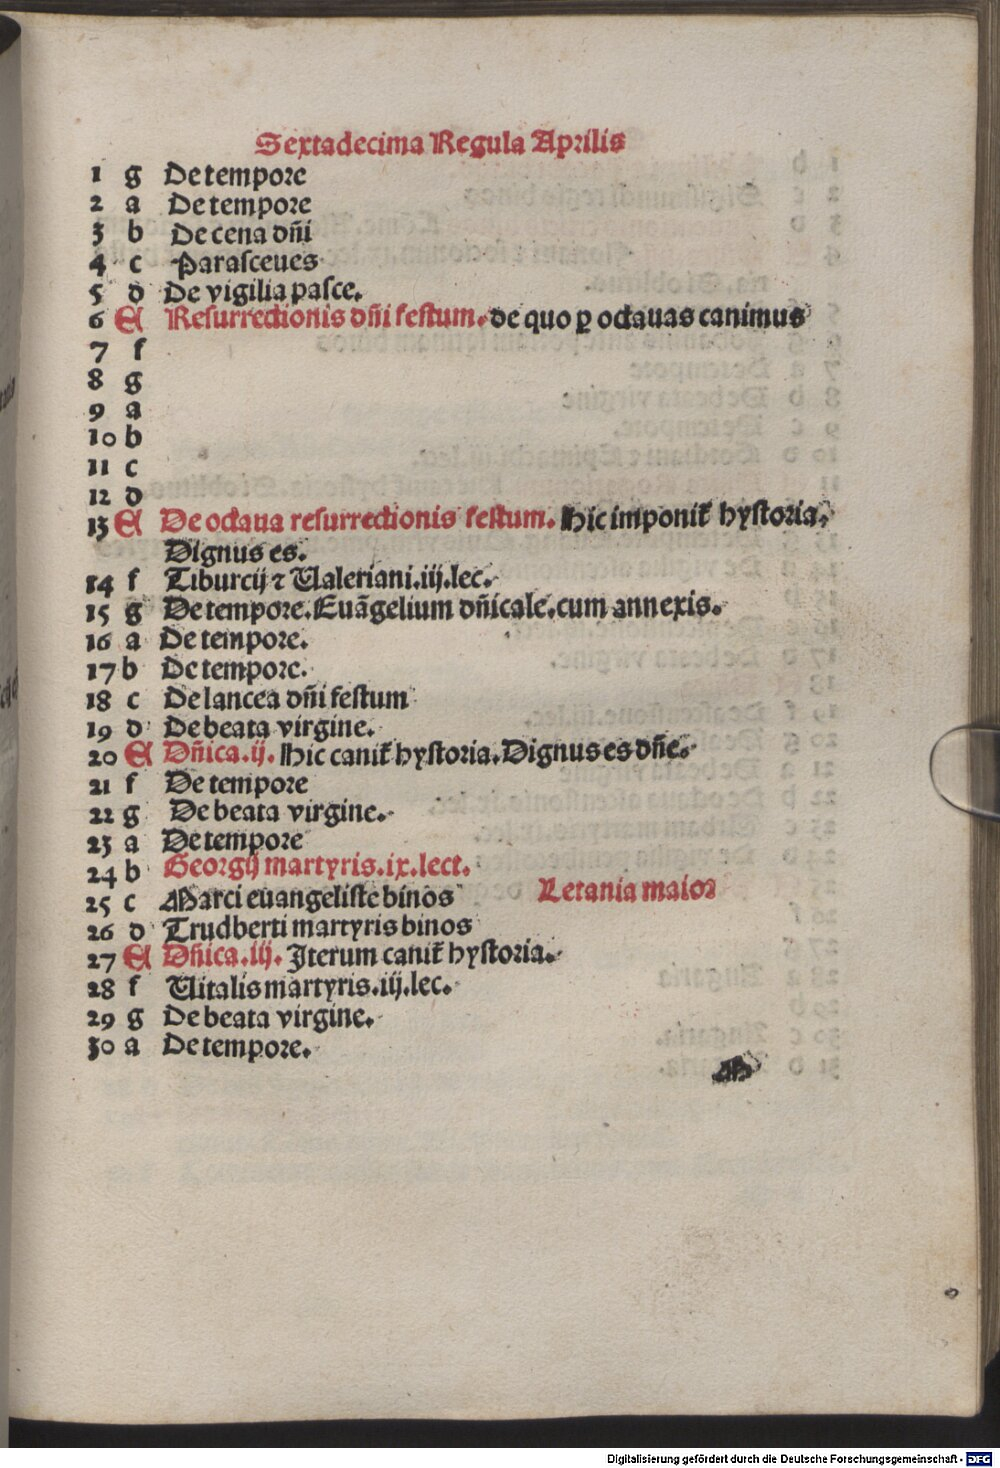 Sextadecima Regula Aprilis
1 g De tempore
2 a De tempore
3 b De cena dñi
4 c Paraſceues
5 d De vigilia paſce.
6 A Reſurrectionis dñi feſtum. de quo ꝑ octauas canimus
7 f
8 g
9 a
10 b
11 c
12 d
13 A De octaua reſurrectionis feſtum. Hic imponit᷑ hyſtoria.
Dignus es.
14 f Tiburcij ⁊ Ualeriani.iij.lec.
15 g De tempore. Euãgelium dñicale. cum annexis.
16 a De tempore.
17 b De tempore.
18 c De lancea dñi feſtum
19 d De beata virgine.
20 A Dñica.ij. Hic canit᷑ hyſtoria. Dignus es dñe.
21 f De tempore
22 g De beata virgine.
23 a De tempore
24 b Georgij martyris.ix.lect.
25 c Marci euangeliſte binos Letania maior
26 d Trudberti martyris binos
27 A Dñica.iij. Iterum canit᷑ hyſtoria.
28 f Uitalis martyris.iij.lec.
29 g De beata virgine.
30 a De tempore.
Digitalisierung gefördert durch die Deutsche Forschungsgemeinschaft - DFG